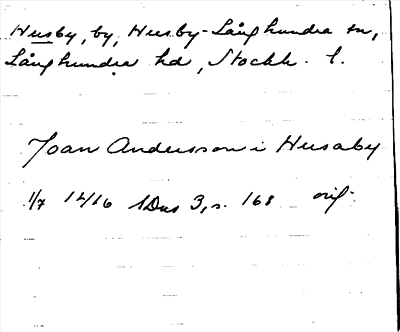 Husby, by, Husby-Långhundra sn,
Långhundra hd, Stockh. l.
Joan Andersson i Husaby
1/7 1416 SDns 3, s. 168 orig.